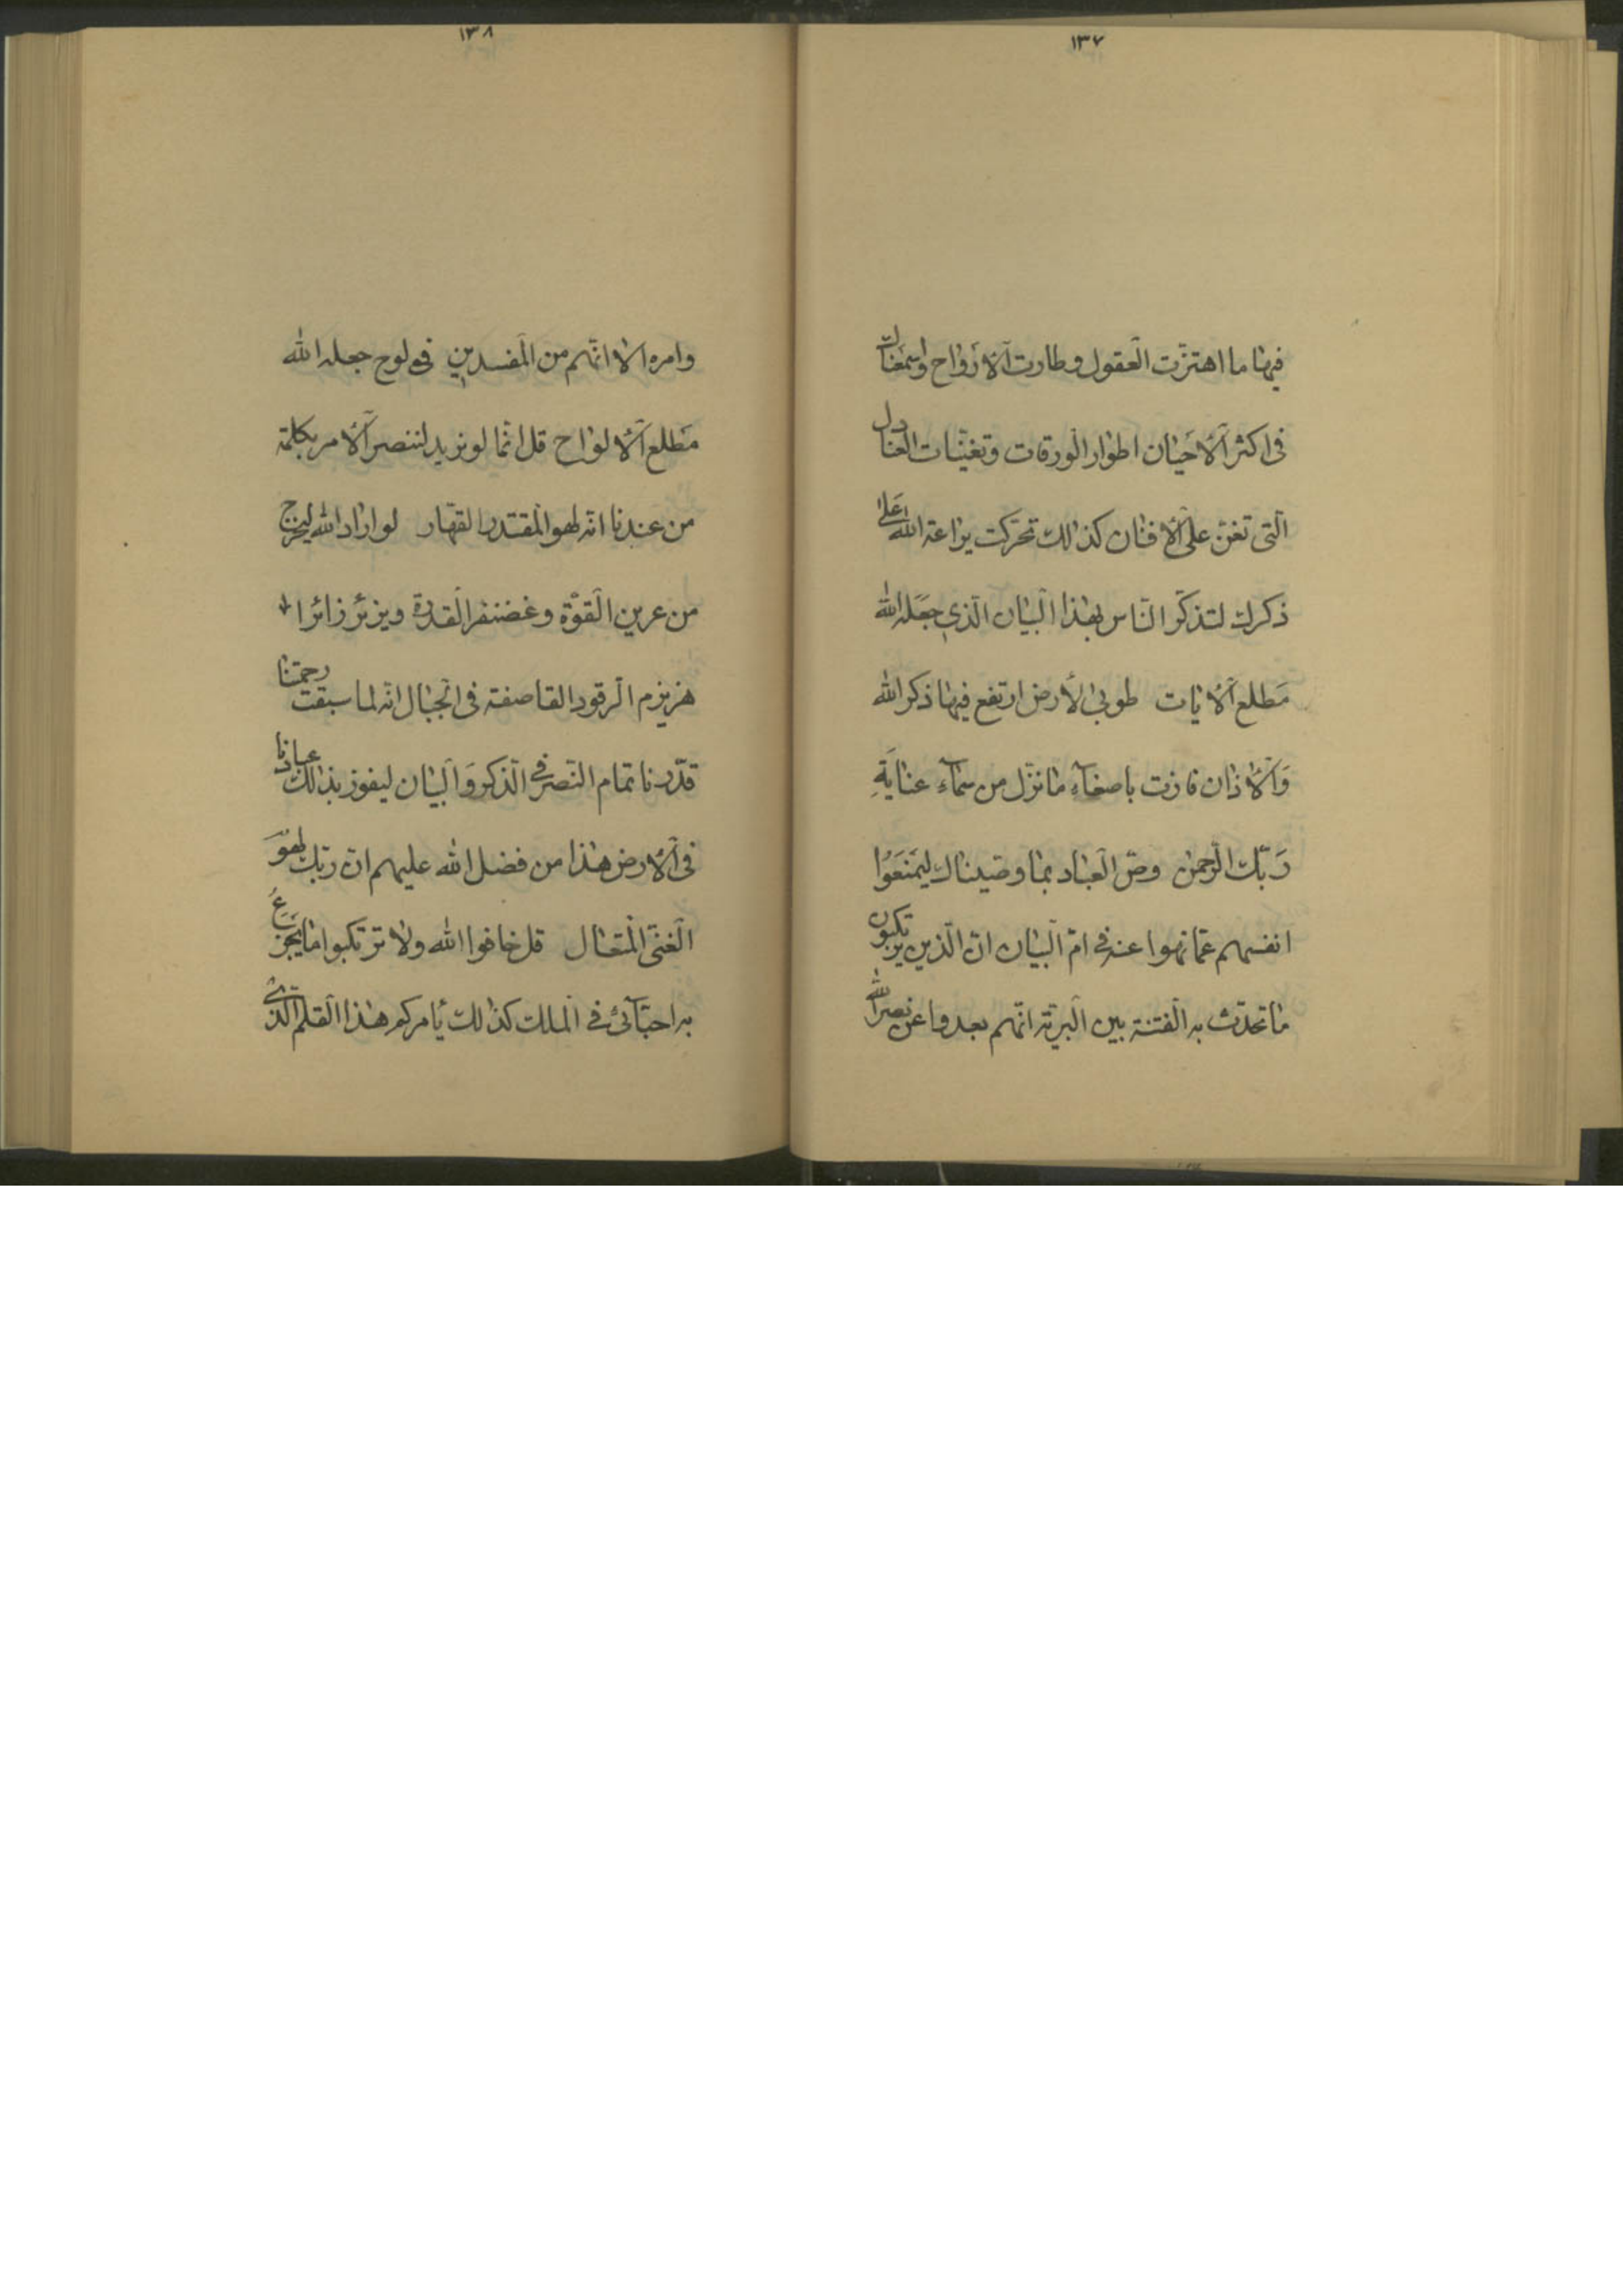 ١٣٧
فيها ما اهتزّت العقول و طارت الارواح و اسمعناك
فى اكثر الاحيان اطوار الورقات و تغنّيات العنادل
الّتى تغنّ على الافنان كذلك تحرّكت يراعة الله على
ذكرك لتذكّر النّاس بهذا البيان الّذي جعله الله
مطلع الايات طوبى لأرض ارتفع فيها ذكر الله
و الاذان فازت باصغاء ما نزّل من سمآء عناية
ربّك الرّحمن وصّ العباد بما وصّيناك ليمنعوا
انفسهم عمّا نهوا عنه فى امّ البيان انّ الّذين يرتكبون
ما تحدث به الفتنة بين البريّة انّهم بعدوا عن نصر الله
١٣٨
و امره الا انّهم من المفسدين في لوح جعله الله
مطلع الالواح قل انّا لو نريد لننصر الامر بكلمة
من عندنا انّه لهو المقتدر القهّار لو اراد الله ليخرج
من عرين القوّة و غضنفر القدرة و يزئر زائرا
هزيزم الرقود القاصفة فى الجبال انّه لما سبقت رحمتنا
قدّرنا تمام النّصر فى الذّكر و البيان ليفوز بذلك عبادنا
فى الارض هذا من فضل الله عليهم انّ ربّك لهو
الغنىّ المتعال قل خافوا الله و لا ترتكبوا ما يجزع
به احبّآئى فى الملك كذلك يأمركم هذا القلم الّذى